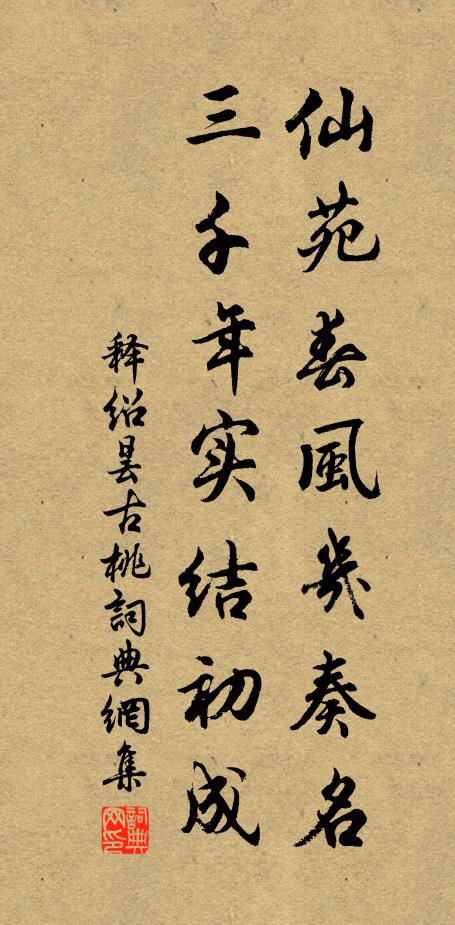 仙苑春風幾奏名
三千年实结初成
释绍昙古桃詞典網集
詞典网印